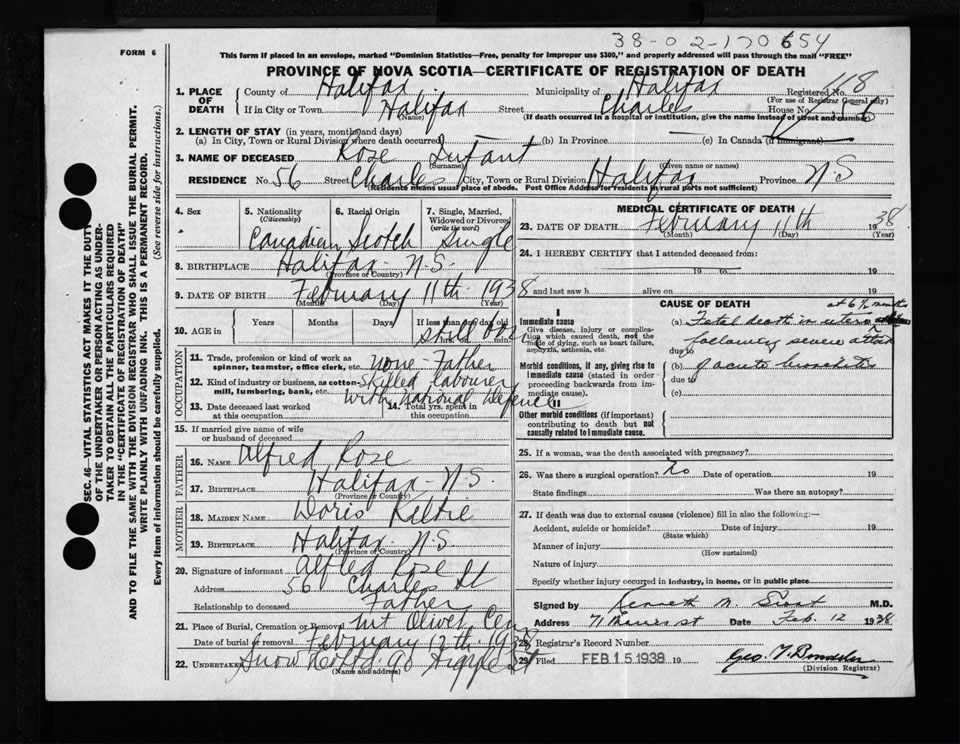 38-02-170654
FORM 6
This form if placed in an envelope, marked "Dominion Statistics—Free, penalty for improper use $300," and properly addressed will pass through the mail "FREE"
PROVINCE OF NOVA SCOTIA—CERTIFICATE OF REGISTRATION OF DEATH
1. PLACE OF DEATH
County of Halifax Municipality of Halifax Registered No. 118
(For use of Registrar General only)
If in City or Town Halifax Street Charles House No. 56
(Name) (If death occurred in a hospital or institution, give the name instead of street and number)
2. LENGTH OF STAY (in years, months and days)
(a) In City, Town or Rural Division where death occurred (b) In Province (c) In Canada (if immigrant)
3. NAME OF DECEASED Rose Infant
(Surname) (Given name or names)
RESIDENCE No. 56 Street Charles City, Town or Rural Division Halifax Province N.S
(Residence means usual place of abode. Post Office Address for residents in rural parts not sufficient)
4. Sex
5. Nationality (Citizenship) Canadian
6. Racial Origin Scotch
7. Single, Married, Widowed or Divorced (write the word) Single
8. BIRTHPLACE Halifax - N.S.
(Province or Country)
9. DATE OF BIRTH February 11th 1938
(Month) (Day) (Year)
10. AGE in Years Months Days If less than one day old
hrs. min. still born
OCCUPATION
11. Trade, profession or kind of work as spinner, teamster, office clerk, etc. none - Father
12. Kind of industry or business, as cotton-mill, lumbering, bank, etc. Skilled labourer
with National Defence
13. Date deceased last worked at this occupation
14. Total yrs. spent in this occupation
15. If married give name of wife or husband of deceased
FATHER
16. NAME Alfred Rose
17. BIRTHPLACE Halifax - N.S.
(Province or Country)
MOTHER
18. MAIDEN NAME Doris Keltie
19. BIRTHPLACE Halifax N.S.
(Province or Country)
20. Signature of informant Alfred Rose
Address 56 Charles St
Relationship to deceased Father
21. Place of Burial, Cremation or Removal Mt Olivet Cem
Date of burial or removal February 12th 1938
22. UNDERTAKER Snow Co Ltd 90 Argyle St
(Name and address)
MEDICAL CERTIFICATE OF DEATH
23. DATE OF DEATH February 11th 1938
(Month) (Day) (Year)
24. I HEREBY CERTIFY that I attended deceased from:
19 to 19
and last saw h alive on 19
CAUSE OF DEATH
at 6½ months
I
Immediate cause
Give disease, injury or complication which caused death, not the mode of dying, such as heart failure, asphyxia, asthenia, etc.
(a) Fetal death in utero
due to following severe attack
Morbid conditions, if any, giving rise to immediate cause (stated in order proceeding backwards from immediate cause).
(b) of acute bronchitis
due to
(c)
II
Other morbid conditions (if important) contributing to death but not causally related to immediate cause.
25. If a woman, was the death associated with pregnancy?
26. Was there a surgical operation? No Date of operation 19
State findings Was there an autopsy?
27. If death was due to external causes (violence) fill in also the following:—
Accident, suicide or homicide? Date of injury 19
(State which)
Manner of injury
(How sustained)
Nature of injury
Specify whether injury occurred in industry, in home, or in public place
Signed by M.D.
Address 71 St Date Feb. 12 1938
28. Registrar's Record Number
29. Filed FEB 15 1938 19 Geo.
(Division Registrar)
SEC. 46—VITAL STATISTICS ACT MAKES IT THE DUTY
OF THE UNDERTAKER OR PERSON ACTING AS UNDER-
TAKER TO OBTAIN ALL THE PARTICULARS REQUIRED
IN THE "CERTIFICATE OF REGISTRATION OF DEATH"
AND TO FILE THE SAME WITH THE DIVISION REGISTRAR WHO SHALL ISSUE THE BURIAL PERMIT.
WRITE PLAINLY WITH UNFADING INK. THIS IS A PERMANENT RECORD.
Every item of information should be carefully supplied. (See reverse side for instructions.)